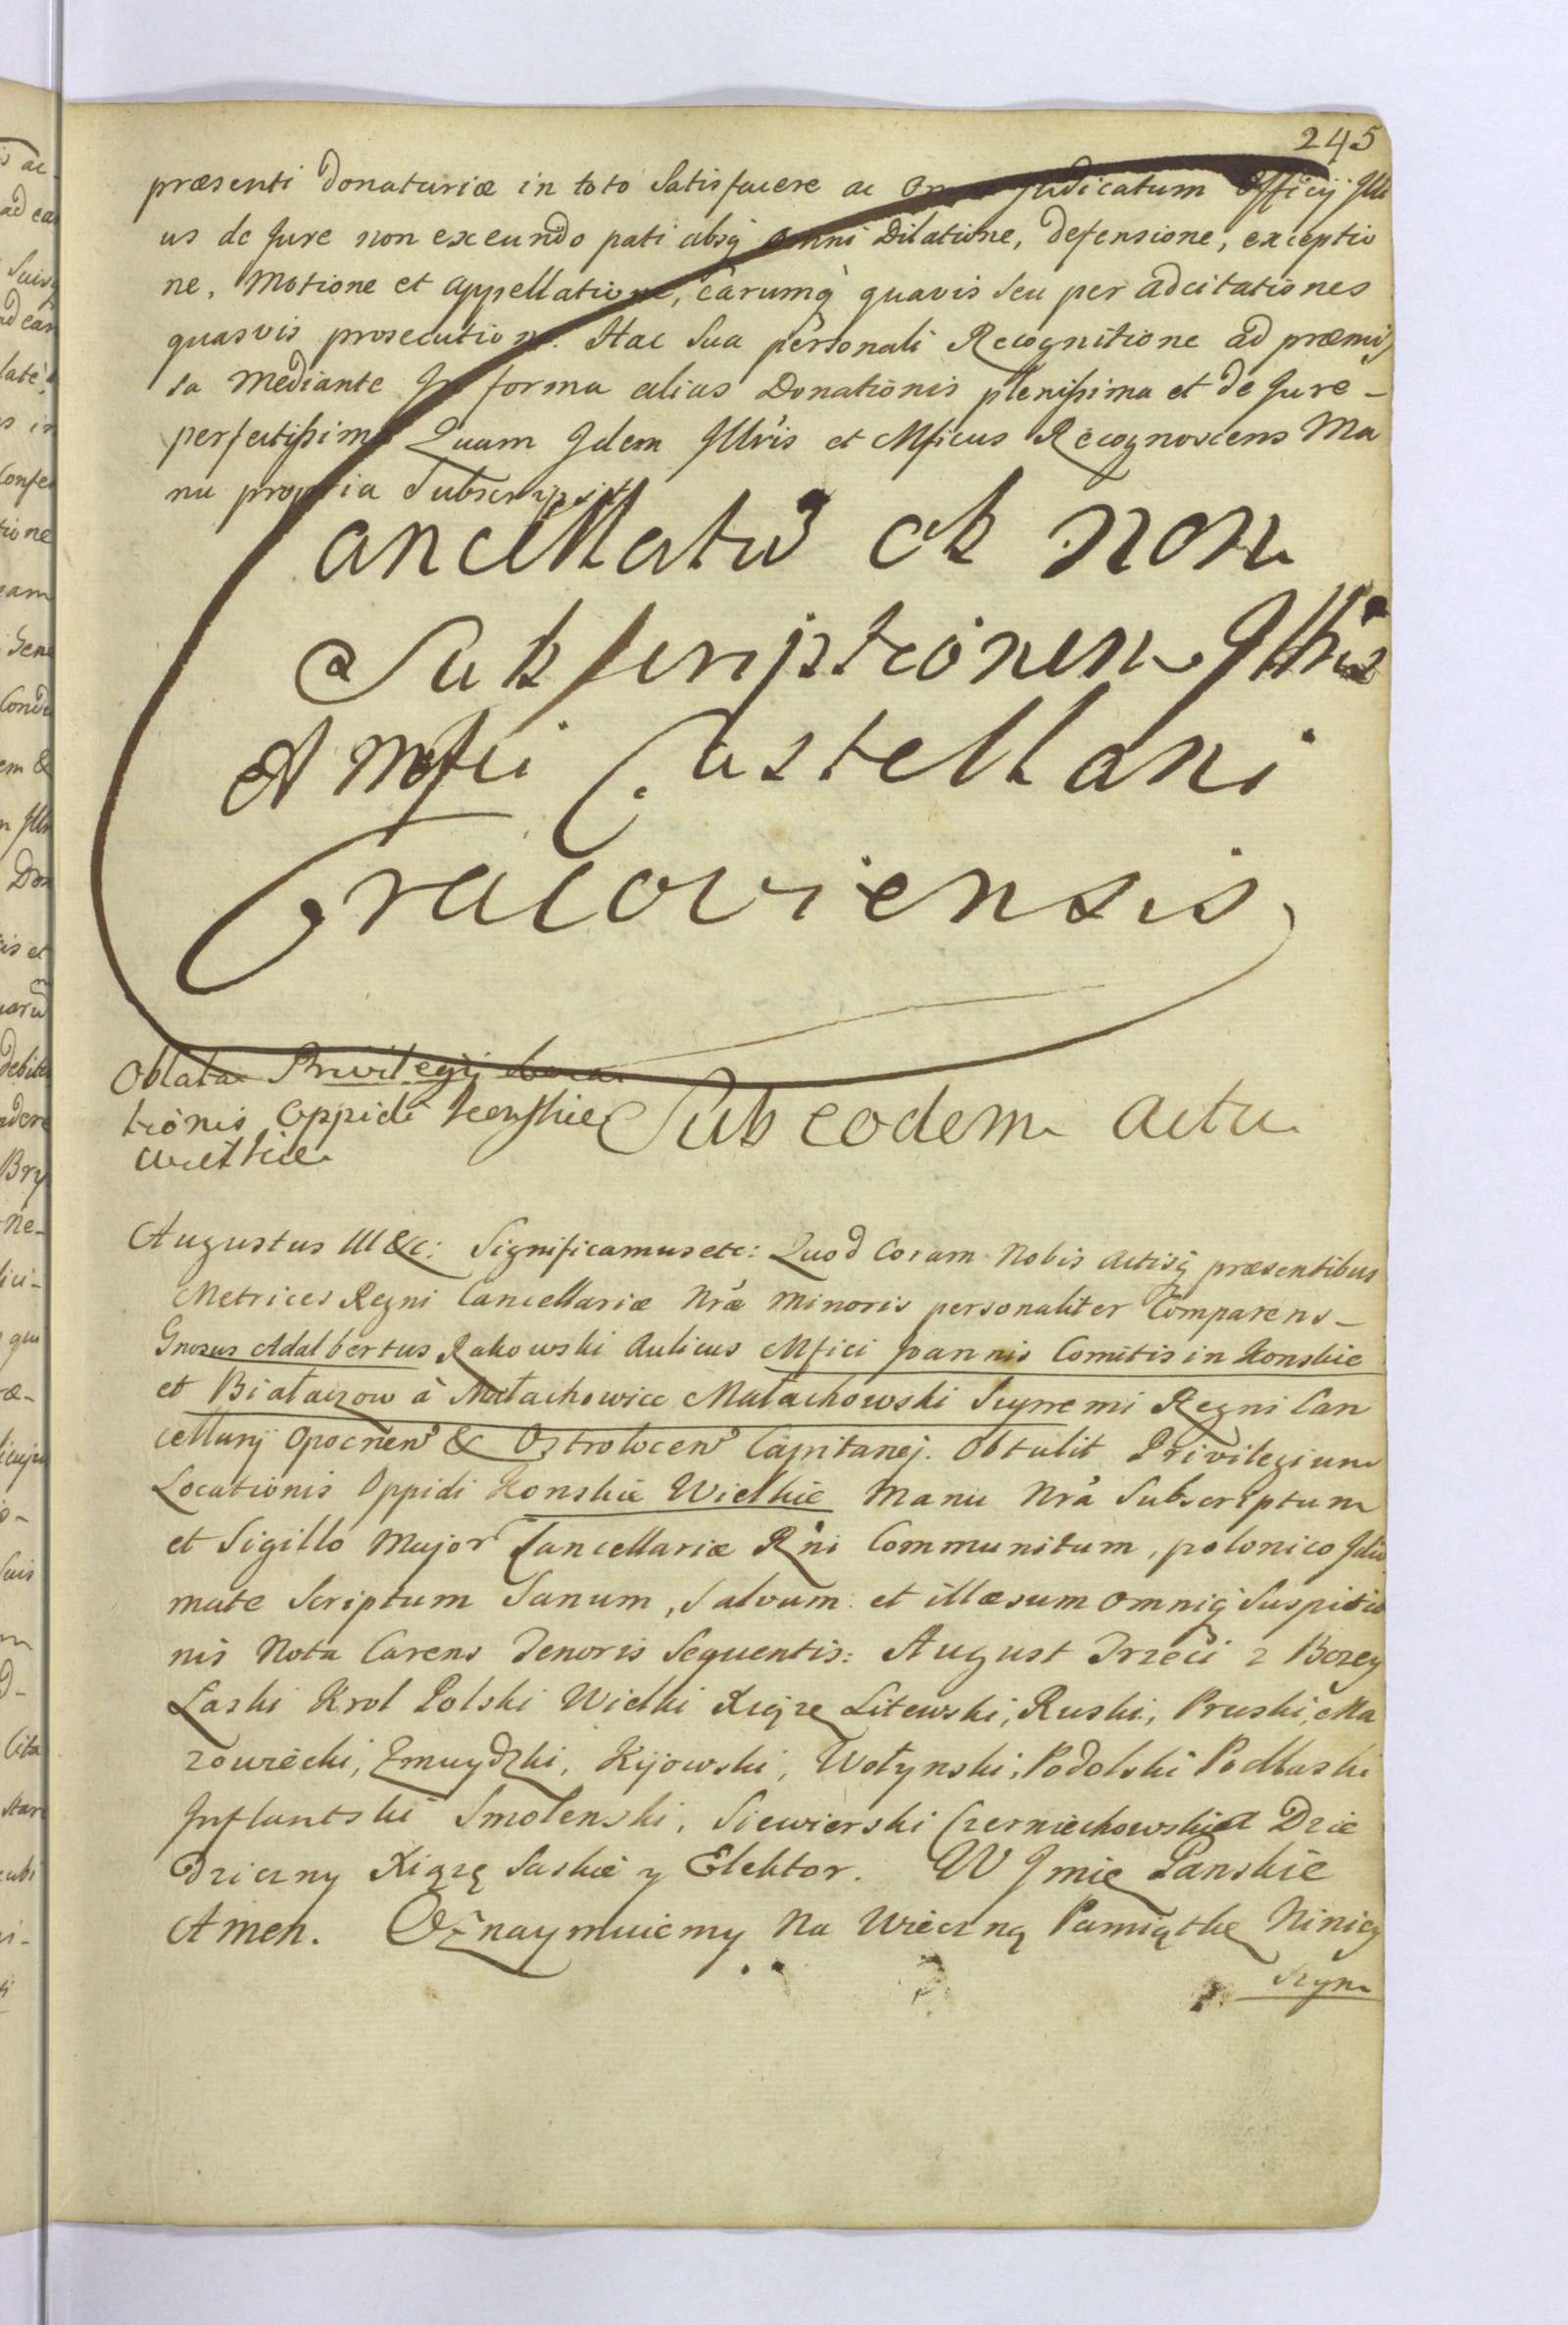 245
præsenti Donaturiæ in toto Satisfacere ac Omne Judicatum Officij Illi
us de Jure non exeundo pati absq omni Dilatione, defensione, exceptio
ne, Motione et appellatione, earumq quavis seu per adcitationes
quasvis prosecutione. Hac Sua personali Recognitione ad præmis
sa Mediante In forma alias Donationis plenissima et de Jure -
perfectissima Quam Idem Illris et Mficus Recognoscens Ma
nu propria Subscripsit
Cancellatū ob non
Subscriptionem Illris
et Mfci Castellani
Cracoviensis
Oblata Privilegij Loca
tionis Oppidi Konskie
Wielkie
Sub eodem actu
Augustus III &c: Significamus etc: Quod Coram Nobis Actisq præsentibus
Metrices Regni Cancellariæ Nræ Minoris personaliter Comparens -
Gnosus Adalbertus Rakowski Aulicus Mfici Joannis Comitis in Konskie
et Białaczow à Małachowice Małachowski Supremi Regni Can
cellarij Opocnen & Ostrołocen Capitanej. Obtulit Privilegium
Locationis Oppidi Konskie Wielkie Manu Nrá Subscriptum
et Sigillo Major Cancellariæ Rni Communitum, polonico Idio
mate Scriptum Sanum, Salvum et illæsum omniq Suspitio
nis Nota Carens Tenoris Sequentis: August Trzeci z Bozey
Łaski Krol Polski Wielki Xiąze Litewski, Ruski, Pruski, Ma
zowiecki, Zmuydzki, Kijowski, Wołynski, Podolski Podlaski
Inflantski Smolenski, Siewierski Czerniechowski a Dzie
dziczny Xiąze Saskie y Elektor. W Jmie Panskie
Amen. Oznaymuiemy Na Wieczną Pamiątkę Niniey
szym